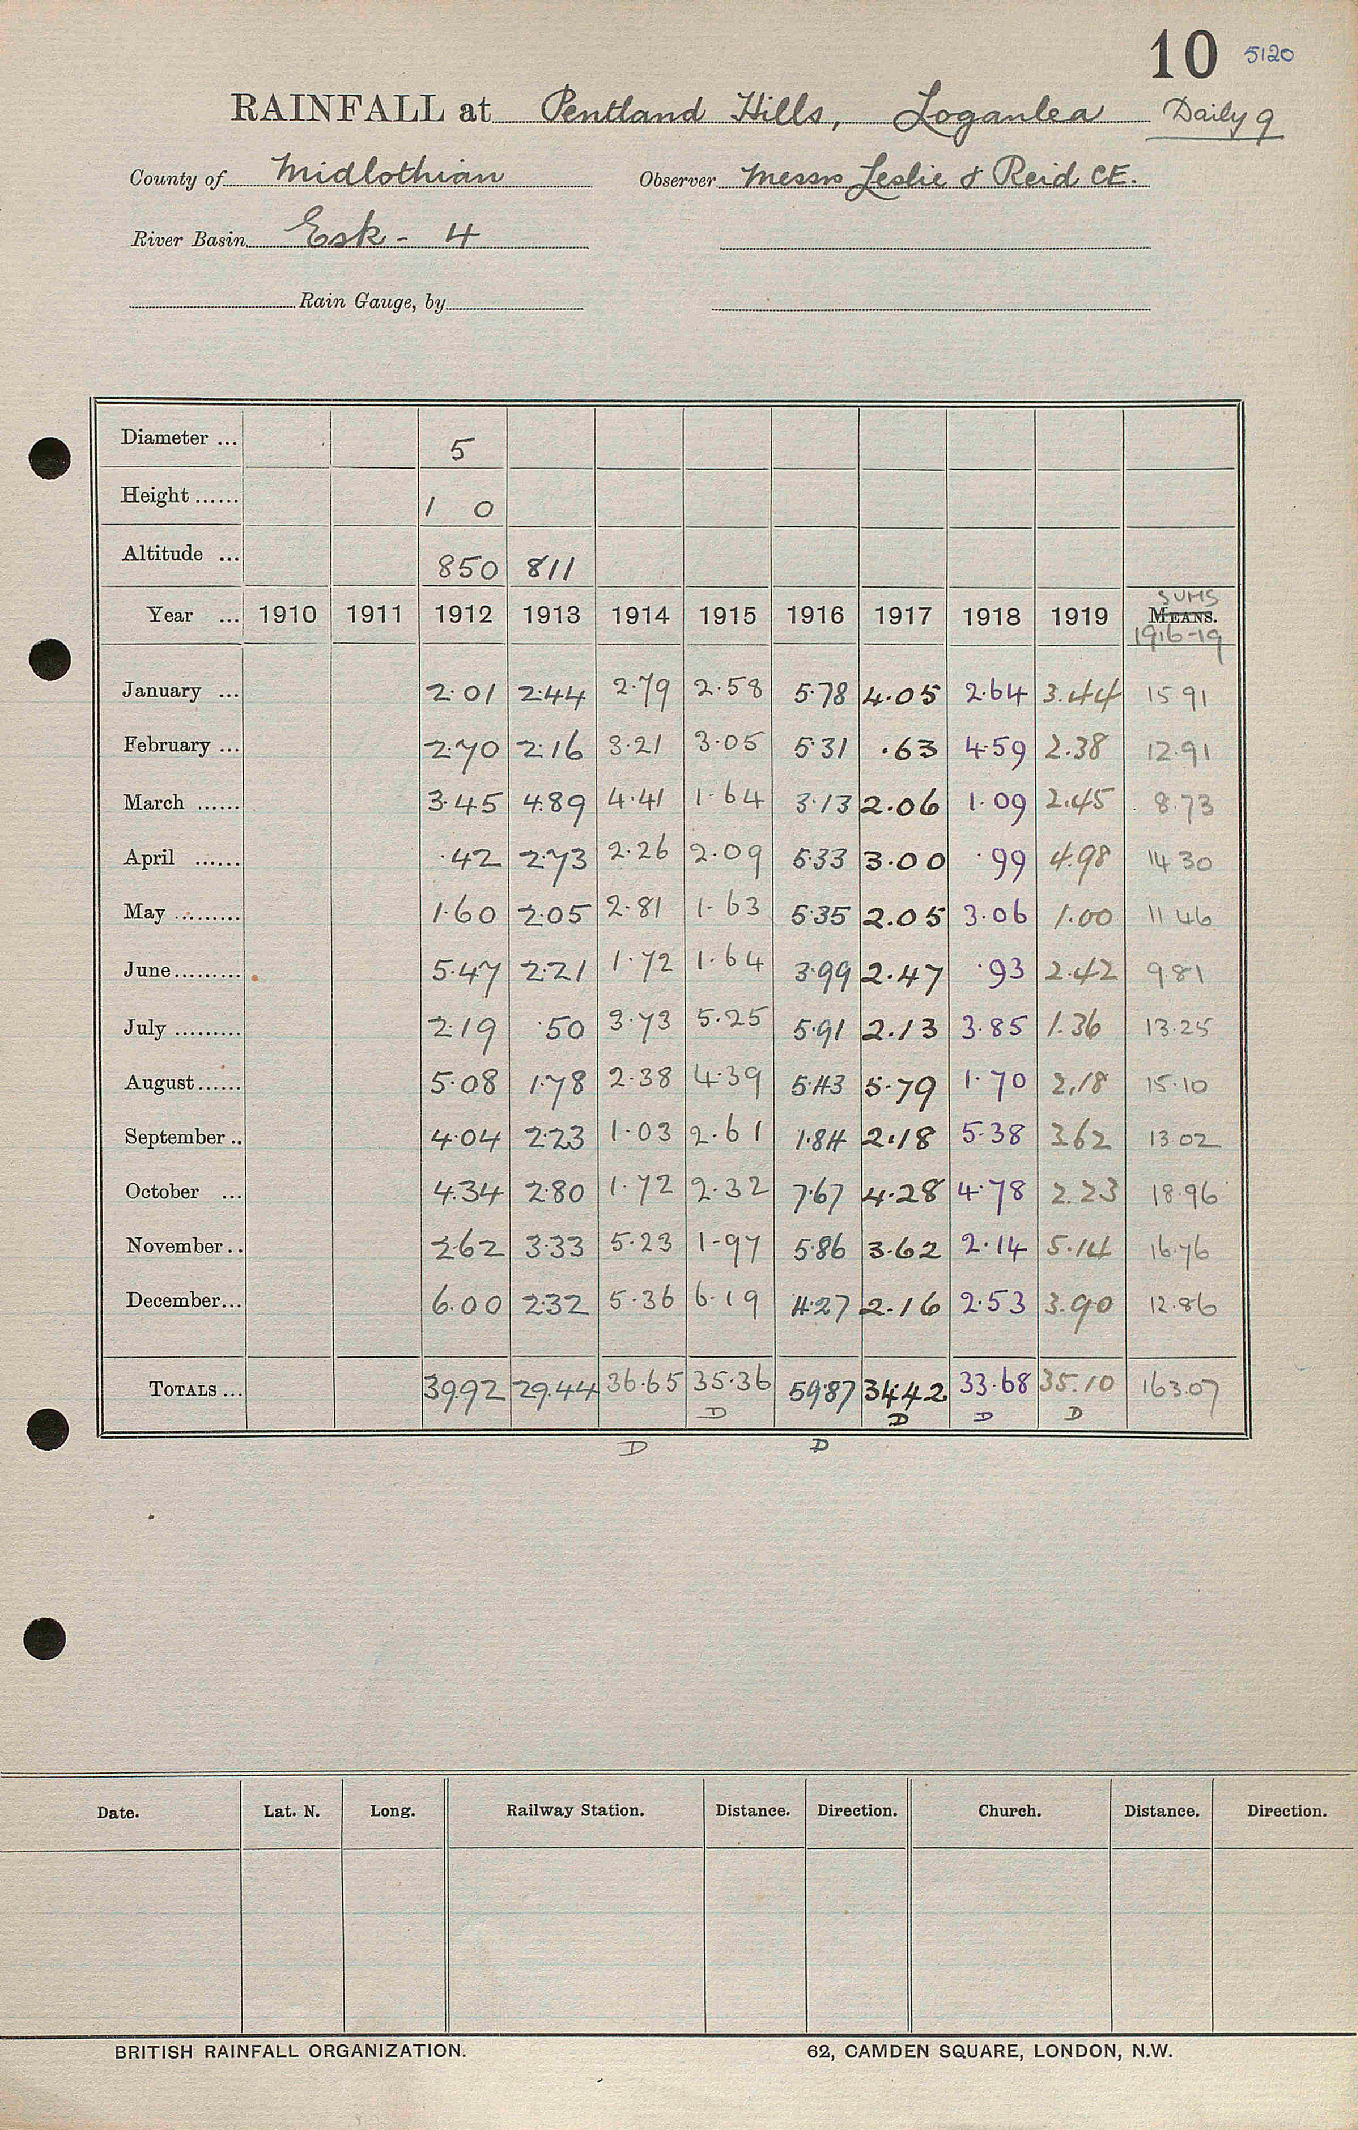 10 5120
RAINFALL at Pentland Hills, Loganlea Daily 9
County of Midlothian Observer Messrs Leslie & Reid CE.
River Basin Esk - 4
Rain Gauge, by
Diameter ... 5
Height ...... 1 0
Altitude ... 850 811
SUMS
Year ... 1910 1911 1912 1913 1914 1915 1916 1917 1918 1919 MEANS.
1916-19
January ... 2.01 2.44 2.79 2.58 5.78 4.05 2.64 3.44 15 91
February ... 2.70 2.16 3.21 3.05 5.31 .63 4.59 2.38 12.91
March ...... 3.45 4.89 4.41 1.64 3.13 2.06 1.09 2.45 8.73
April ...... .42 2.73 2.26 2.09 5.33 3.00 .99 4.98 14 30
May ......... 1.60 2.05 2.81 1.63 5.35 2.05 3.06 1.00 11 46
June ......... 5.47 2.21 1.72 1.64 3.99 2.47 .93 2.42 9 81
July ......... 2.19 .50 3.73 5.25 5.91 2.13 3.85 1.36 13.25
August ...... 5.08 1.78 2.38 4.39 5.43 5.79 1.70 2.18 15.10
September .. 4.04 2.23 1.03 2.61 1.84 2.18 5.38 3.62 13 02
October ... 4.34 2.80 1.72 2.32 7.67 4.28 4.78 2.23 18.96
November .. 2.62 3.33 5.23 1.97 5.86 3.62 2.14 5.14 16.76
December ... 6.00 2.32 5.36 6.19 4.27 2.16 2.53 3.90 12.86
TOTALS ... 39.92 29.44 36.65 35.36 59.87 34.42 33.68 35.10 163.07
D D D D
D D
Date. Lat. N. Long. Railway Station. Distance. Direction. Church. Distance. Direction.
BRITISH RAINFALL ORGANIZATION. 62, CAMDEN SQUARE, LONDON, N.W.